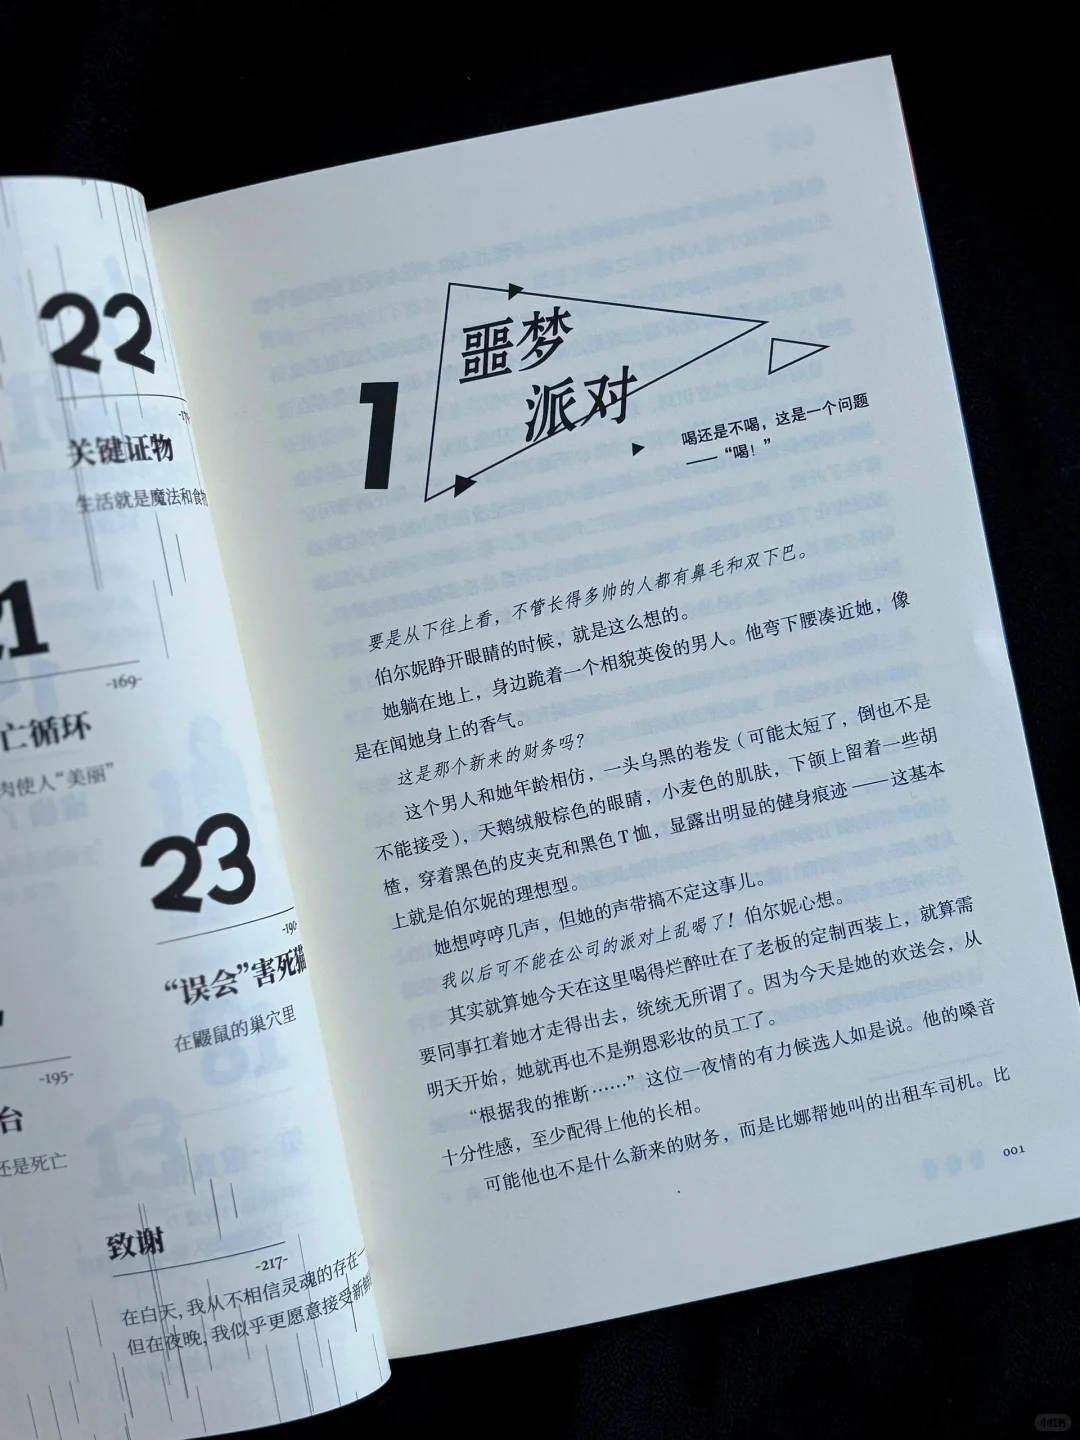 22
关键证物
生活就是魔法和食物
-169-
亡循环
肉使人“美丽”
23
“误会”害死猫
在鼹鼠的巢穴里
-195-
台
还是死亡
致谢
-217-
在白天，我从不相信灵魂的存在
但在夜晚，我似乎更愿意接受新鲜
1
噩梦
派对
喝还是不喝，这是一个问题
——“喝！”
要是从下往上看，不管长得多帅的人都有鼻毛和双下巴。
伯尔妮睁开眼睛的时候，就是这么想的。
她躺在地上，身边跪着一个相貌英俊的男人。他弯下腰凑近她，像
是在闻她身上的香气。
这是那个新来的财务吗？
这个男人和她年龄相仿，一头乌黑的卷发（可能太短了，倒也不是
不能接受），天鹅绒般棕色的眼睛，小麦色的肌肤，下颌上留着一些胡
楂，穿着黑色的皮夹克和黑色T恤，显露出明显的健身痕迹——这基本
上就是伯尔妮的理想型。
她想哼哼几声，但她的声带搞不定这事儿。
我以后可不能在公司的派对上乱喝了！伯尔妮心想。
其实就算她今天在这里喝得烂醉吐在了老板的定制西装上，就算需
要同事扛着她才走得出去，统统无所谓了。因为今天是她的欢送会，从
明天开始，她就再也不是朔恩彩妆的员工了。
“根据我的推断……”这位一夜情的有力候选人如是说。他的嗓音
十分性感，至少配得上他的长相。
可能他也不是什么新来的财务，而是比娜帮她叫的出租车司机。比
001
小红书